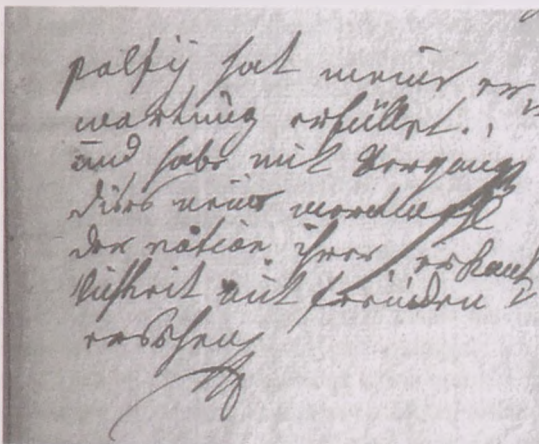 palfij hat meine er-
wartung erfüllet.
und habe mit Vergnüg
dises neüe merckmahl
der nation ihrer erkant
lichkeit mit freüden
ersehen